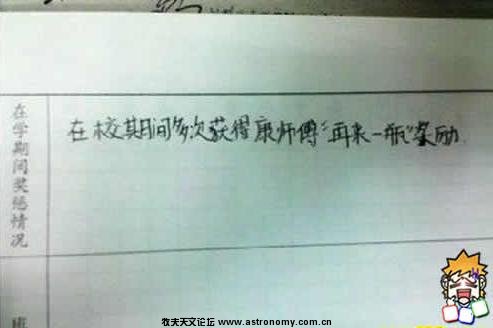 在学期间奖惩情况
在校其日间多次获得康师傅“再来一瓶”奖励.
班
牧夫天文论坛 www.astronomy.com.cn